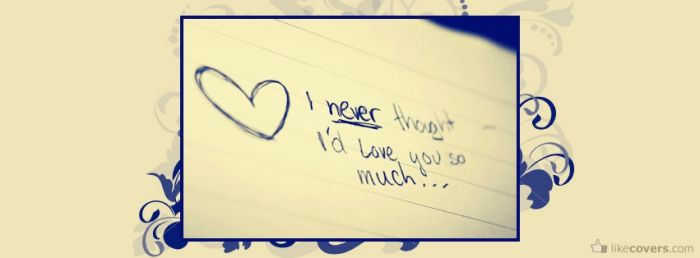 I never thought
I'd love you so
much...
likecovers.com